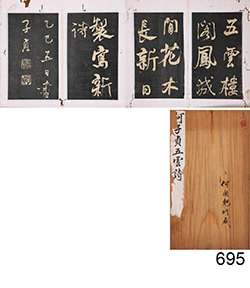 五雲樓
閣鳳城
間花木
長新日
製寫新
詩
乙巳五日書
子貞
何子貞五雲詩
695